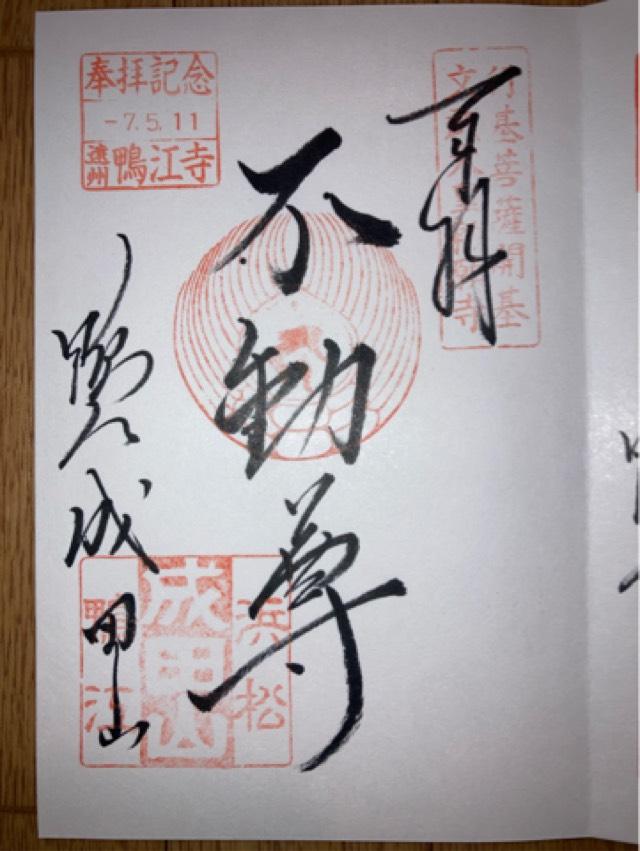 奉拝
行基菩薩開基
文武天皇勅願寺
不動尊
成田山
奉拝記念
-7.5.11
遠州 鴨江寺
浜松
成田山
鴨江